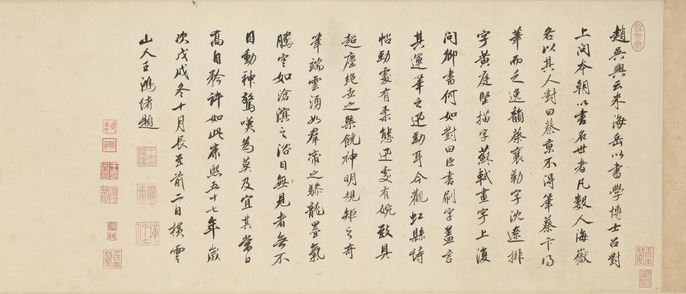 趙吳興云米海岳以書學博士召對
上問本朝以書名世者凡數人海嶽
各以其人對曰蔡京不得筆蔡卞得
筆而乏逸韻蔡襄勒字沈遼排
字黃庭堅描字蘇軾畫字上復
問卿書何如對曰臣書刷字蓋言
其運筆之迅勁耳今觀虹縣詩
帖勁處有柔態迅處有婉致具
超塵絕世之槩饒神明規矩之奇
筆端雲湧如羣帝之驂龍墨氣
騰空如滄溟之浴日無見者無不
目動神驚嘆為莫及宜其當日
高自矜許如此康熙五十七年歲
次戊戌冬十月長至前二日橫雲
山人王鴻緒題